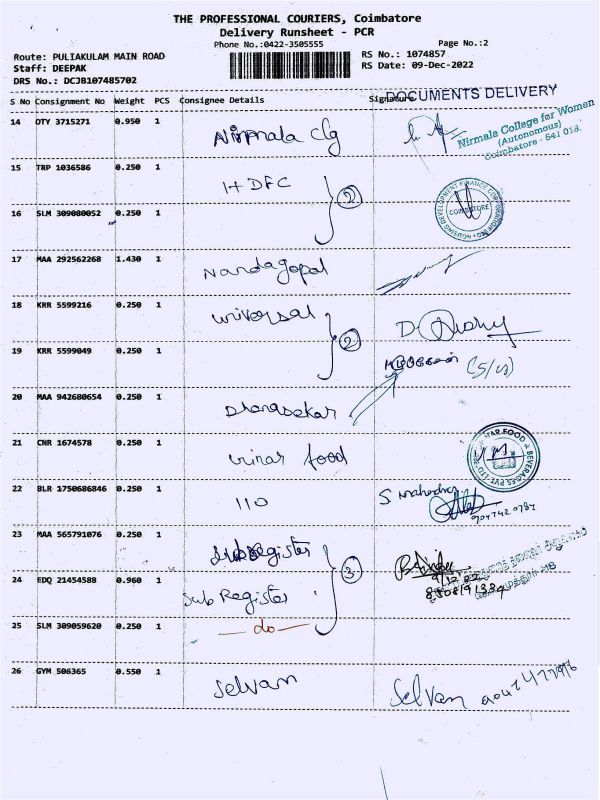 THE PROFESSIONAL COURIERS, Coimbatore
Delivery Runsheet - PCR
Phone No.:0422-3505555
Page No.:2
Route: PULIAKULAM MAIN ROAD
RS No.: 1074857
Staff: DEEPAK
RS Date: 09-Dec-2022
DRS No.: DCJB107485702
S No Consignment No Weight PCS Consignee Details Signature
DOCUMENTS DELIVERY
14 OTY 3715271 0.950 1 Nirmala clg
Nirmala College for Women
(Autonomous)
Coimbatore - 641 018.
15 TRP 1036586 0.250 1 HDFC
2
HOUSING DEVELOPMENT FINANCE CORPORATION
COIMBATORE
16 SLM 309080052 0.250 1
17 MAA 292562268 1.430 1 Nandagopal
18 KRR 5599216 0.250 1 universal
2
19 KRR 5599049 0.250 1
20 MAA 942680654 0.250 1 Dhanasekar
21 CNR 1674578 0.250 1 vinar food
FOOD & BEVERAGES PVT LTD
22 BLR 1750686846 0.250 1 110 S mahendra
23 MAA 565791076 0.250 1 Sub Register
3
24 EDQ 21454588 0.960 1 Sub Register
25 SLM 309059620 0.250 1 — do —
26 GYM 506365 0.550 1 Selvan Selvan